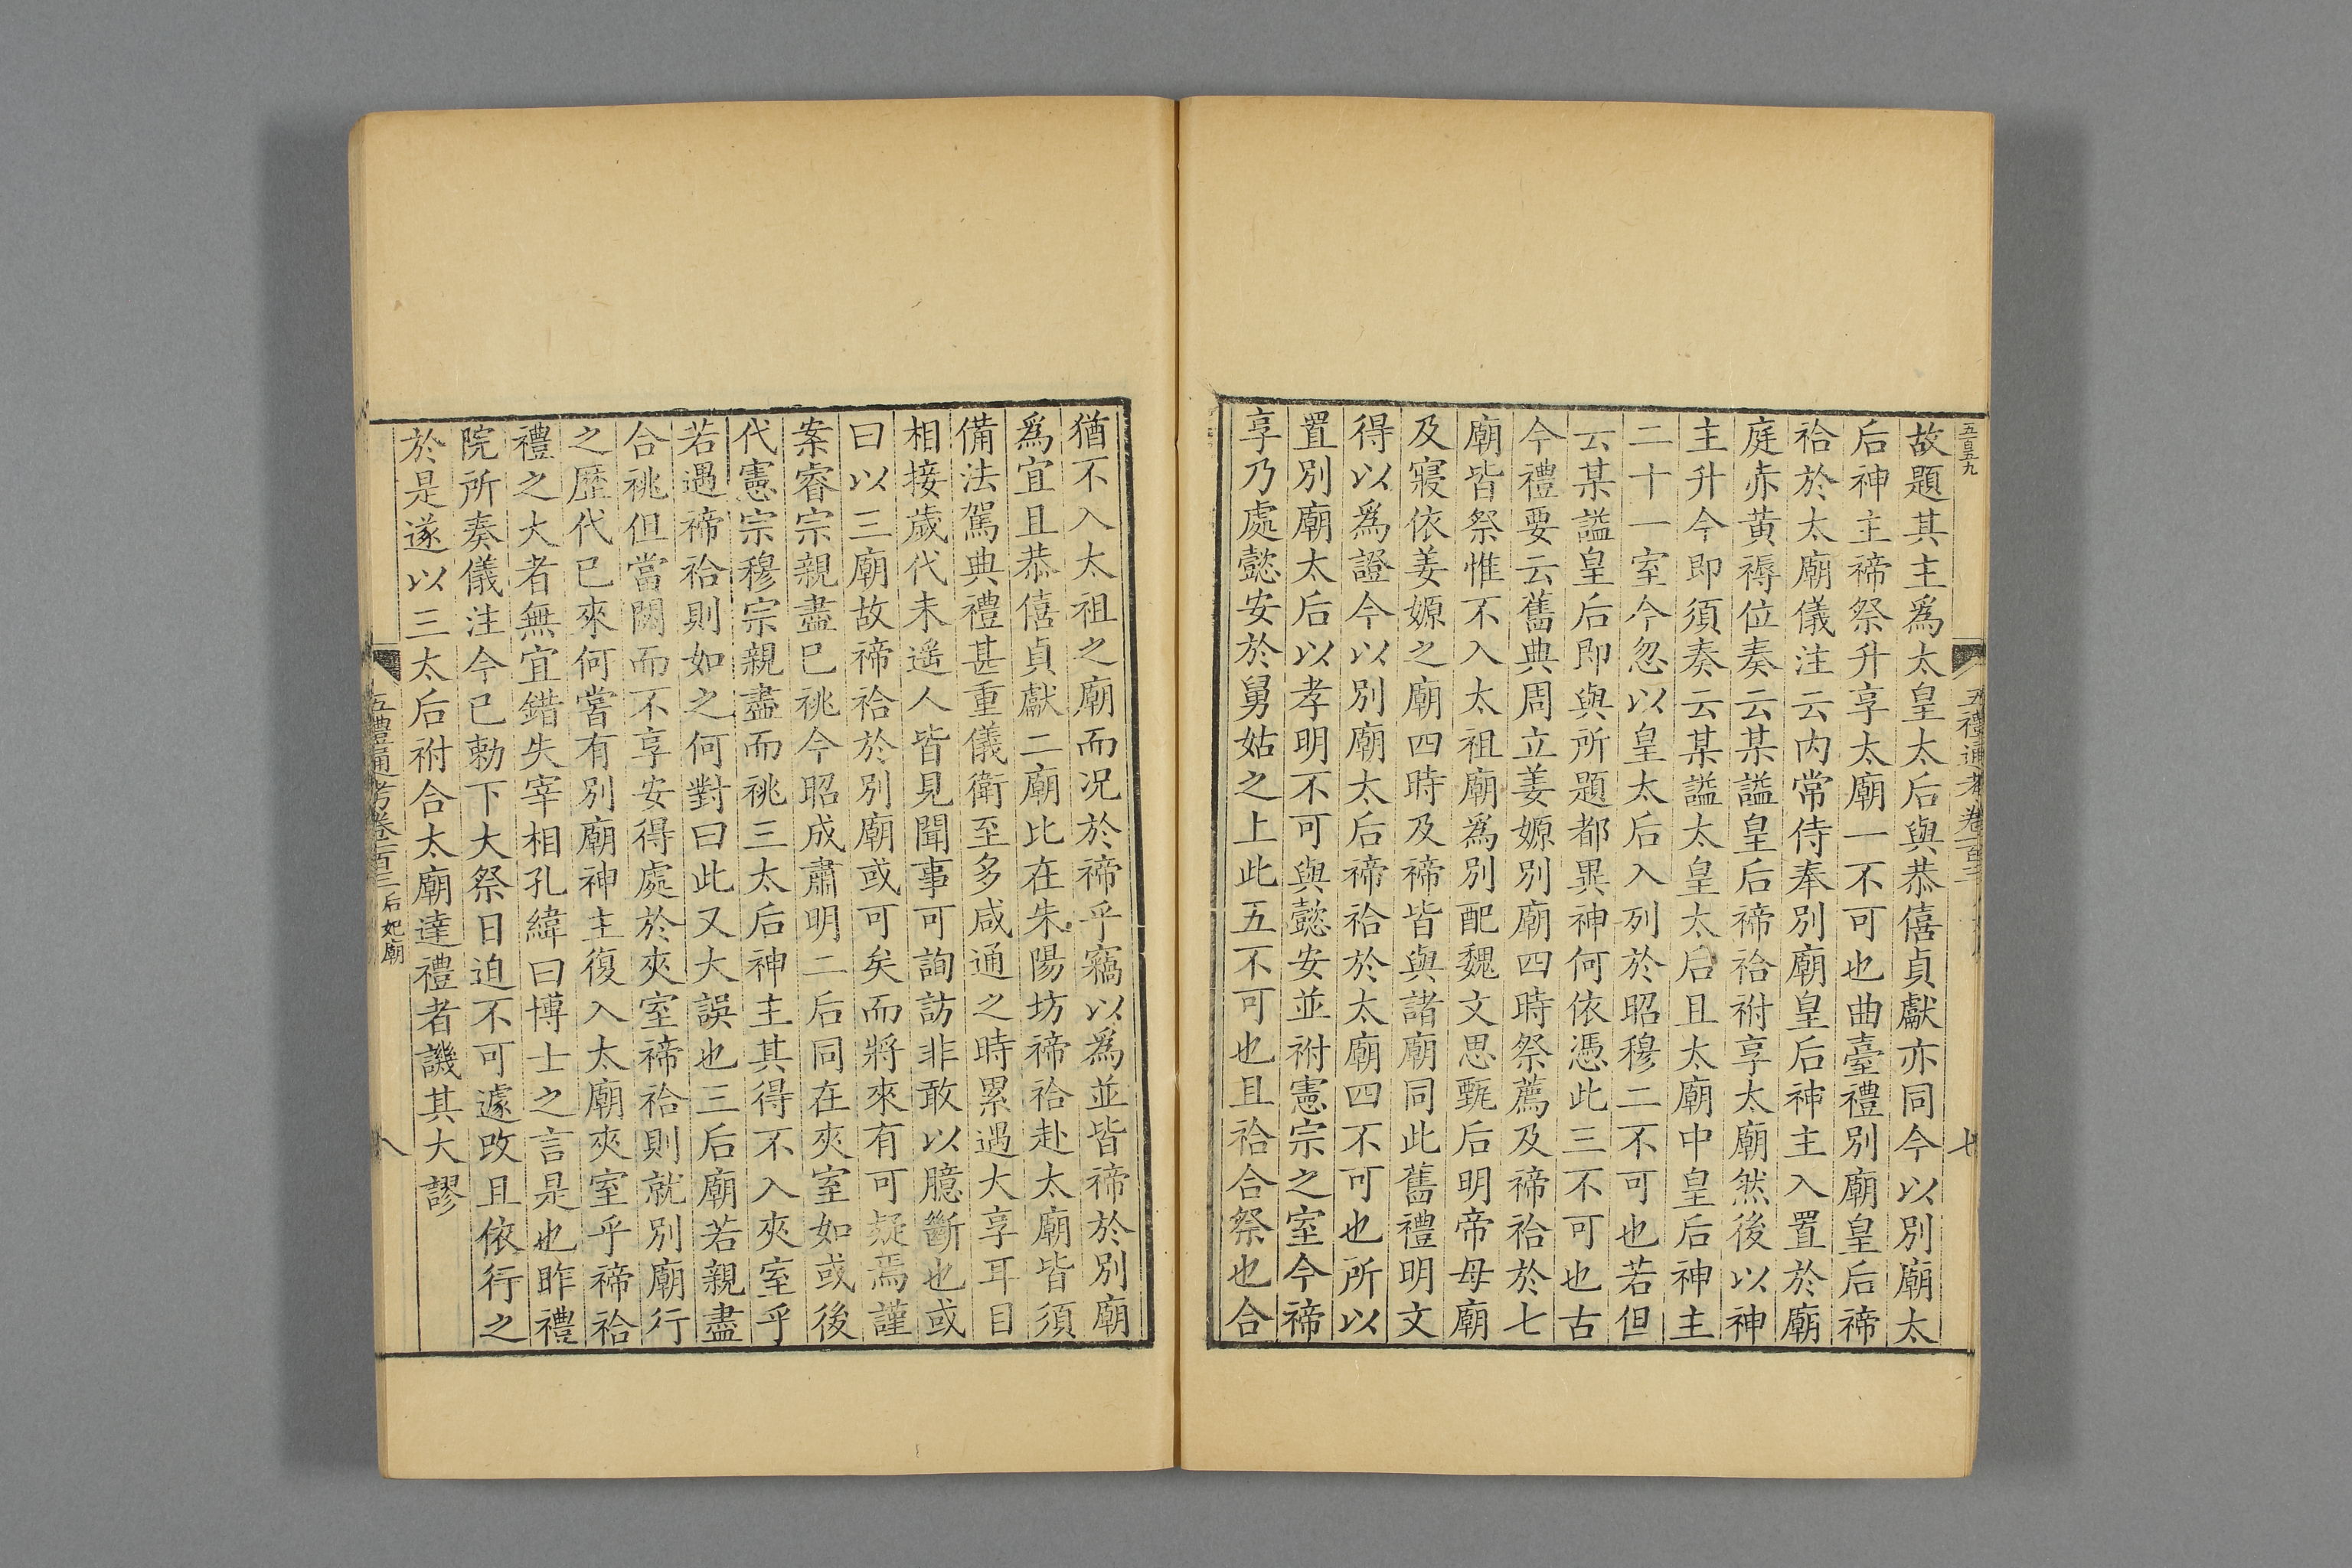 五百五九
五禮通考卷一百三
七
故題其主爲太皇太后與恭僖貞獻亦同今以別廟太
后神主禘祭升享太廟一不可也曲臺禮別廟皇后禘
祫於太廟儀注云内常侍奉別廟皇后神主入置於廟
庭赤黄褥位奏云某謚皇后禘祫祔享太廟然後以神
主升今即須奏云某謚太皇太后且太廟中皇后神主
二十一室今忽以皇太后入列於昭穆二不可也若但
云某謚皇后即與所題都異神何依憑此三不可也古
今禮要云舊典周立姜嫄別廟四時祭薦及禘祫於七
廟皆祭惟不入太祖廟爲別配魏文思甄后明帝母廟
及寢依姜嫄之廟四時及禘皆與諸廟同此舊禮明文
得以爲證今以別廟太后禘祫於太廟四不可也所以
置別廟太后以孝明不可與懿安並祔憲宗之室今禘
享乃處懿安於舅姑之上此五不可也且祫合祭也合
猶不入太祖之廟而况於禘乎竊以爲並皆禘於別廟
爲宜且恭僖貞獻二廟比在朱陽坊禘祫赴太廟皆須
備法駕典禮甚重儀衛至多咸通之時累遇大享耳目
相接歲代未遥人皆見聞事可詢訪非敢以臆斷也或
曰以三廟故禘祫於別廟或可矣而將來有可疑焉謹
案睿宗親盡已祧今昭成肅明二后同在夾室如或後
代憲宗穆宗親盡而祧三太后神主其得不入夾室乎
若遇禘祫則如之何對曰此又大誤也三后廟若親盡
合祧但當閟而不享安得處於夾室禘祫則就別廟行
之歷代已來何嘗有別廟神主復入太廟夾室乎禘祫
禮之大者無宜錯失宰相孔緯曰博士之言是也昨禮
院所奏儀注今已勅下大祭日迫不可遽改且依行之
於是遂以三太后祔合太廟達禮者譏其大謬
五禮通考卷一百三 后妃廟
八